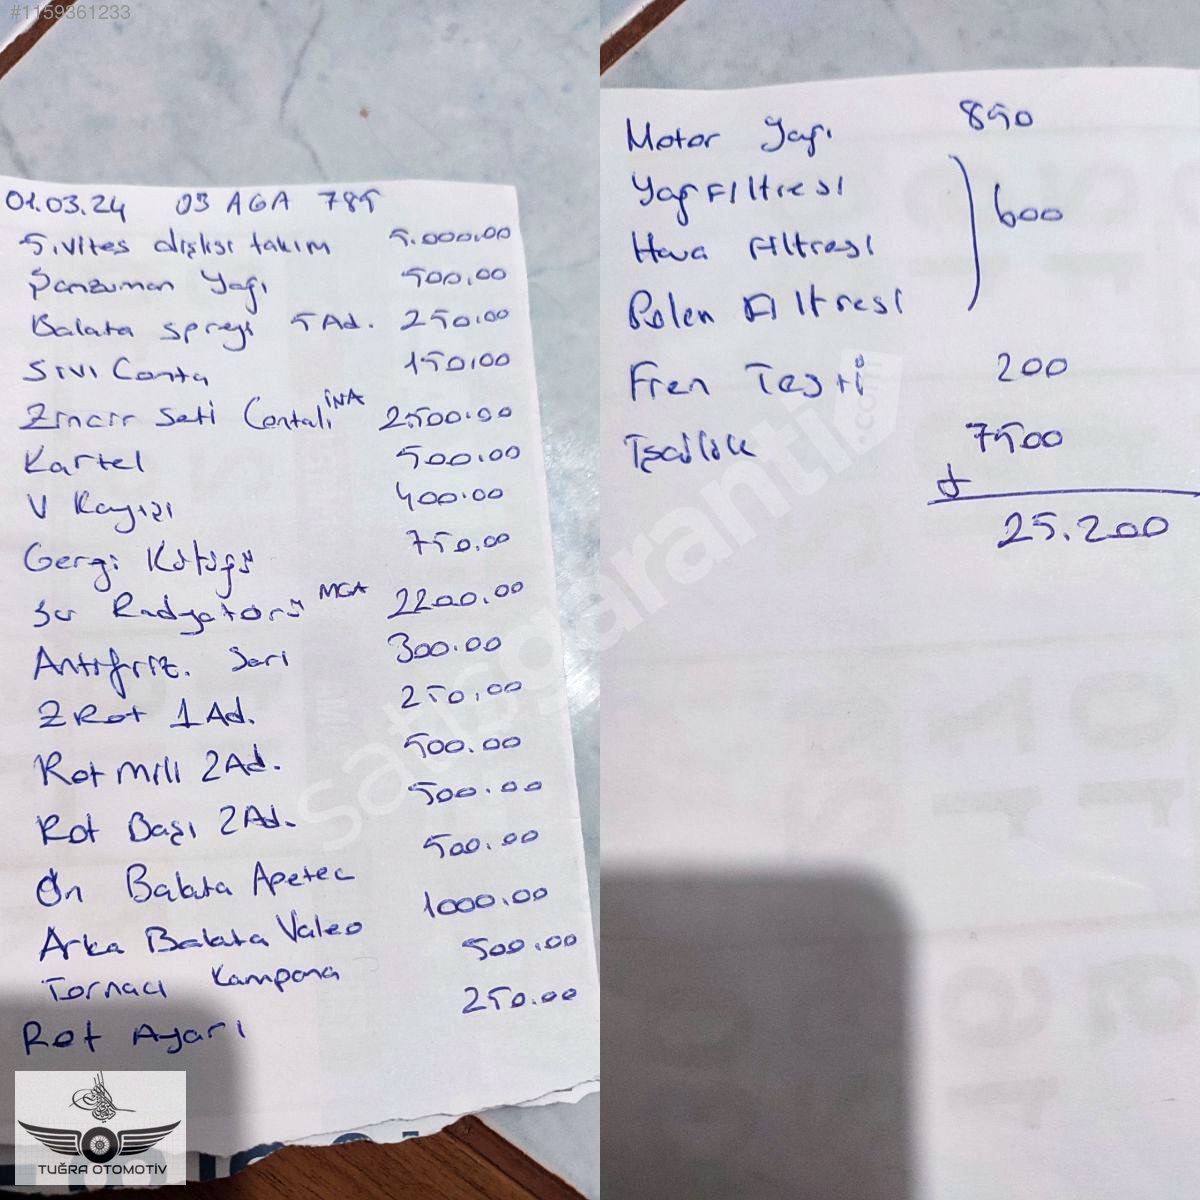 #1159361233
01.03.24 03 AGA 785
5.vites dişlisi takım 5.000.00
Şanzuman Yağı 500.00
Balata spreyi 5 Ad. 250.00
Sıvı Conta 150.00
Zincir Seti Contalı INA 2500.00
Kartel 500.00
V Kayışı 400.00
Gergi Kütüğü 750.00
Su Radyatörü MGA 2200.00
Antifiriz. Sarı 300.00
Z Rot 1 Ad. 250.00
Rot mili 2 Ad. 500.00
Rot Başı 2 Ad. 500.00
Ön Balata Apetec 500.00
Arka Balata Valeo 1000.00
Tornacı Kampana 500.00
Rot Ayarı 250.00
TUĞRA OTOMOTİV
Motor Yağı 850
Yağ Filtresi
Hava Filtresi 600
Polen Filtresi
Fren Testi 200
İşçilik 7500
+
25.200
satisgaranti.com